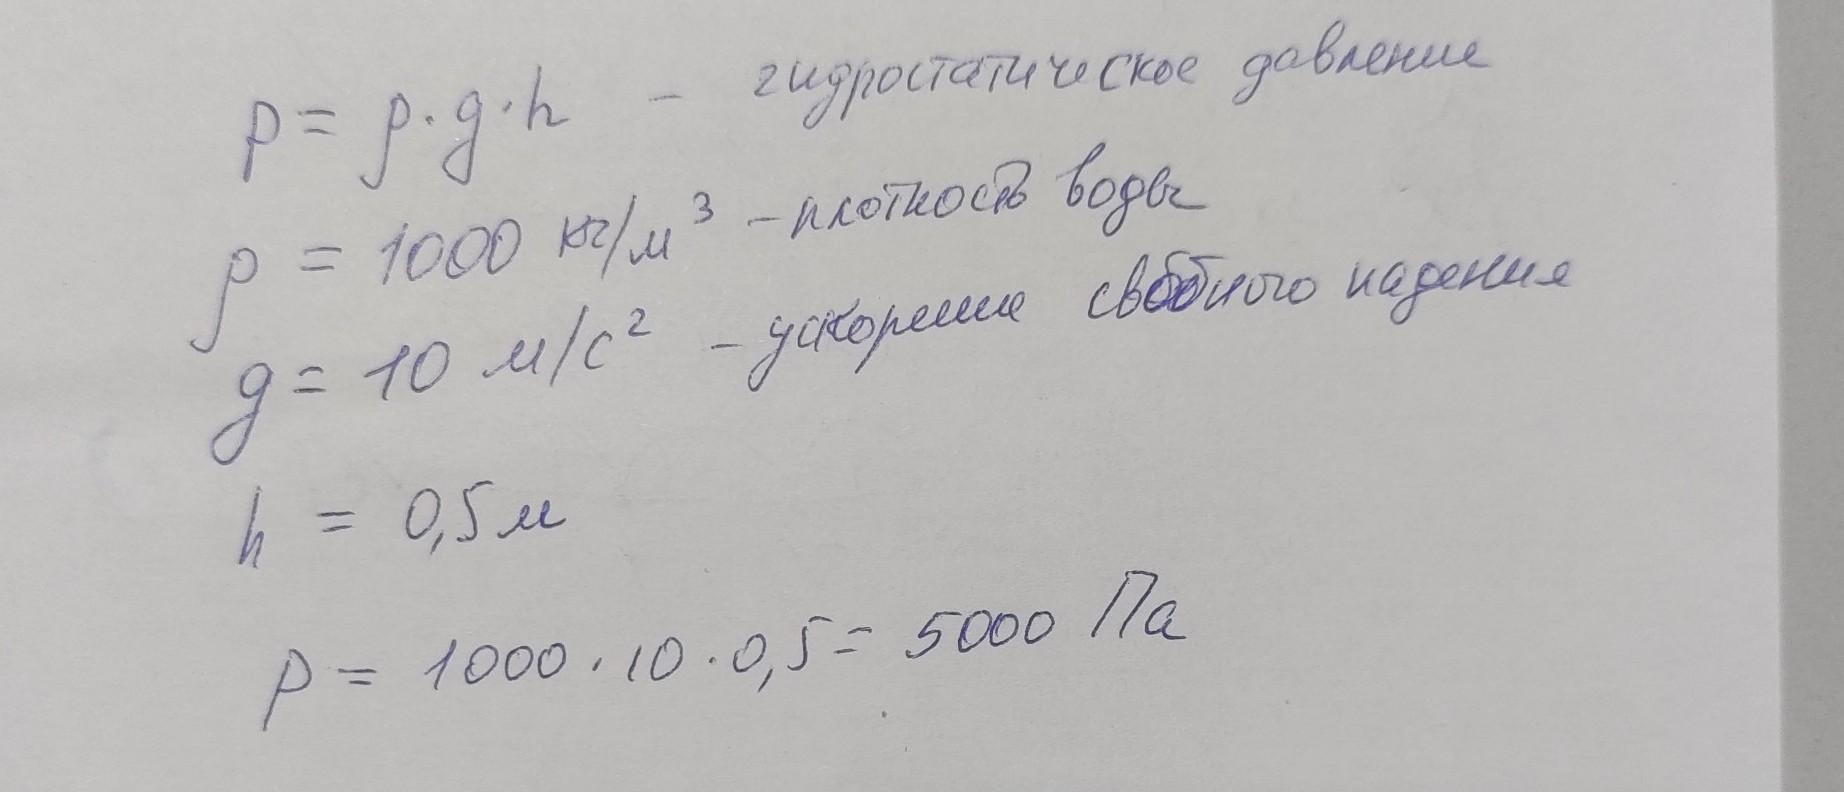 p = ρ · g · h – гидростатическое давление
ρ = 1000 кг/м³ – плотность воды
g = 10 м/с² – ускорение свободного падения
h = 0,5 м
p = 1000 · 10 · 0,5 = 5000 Па